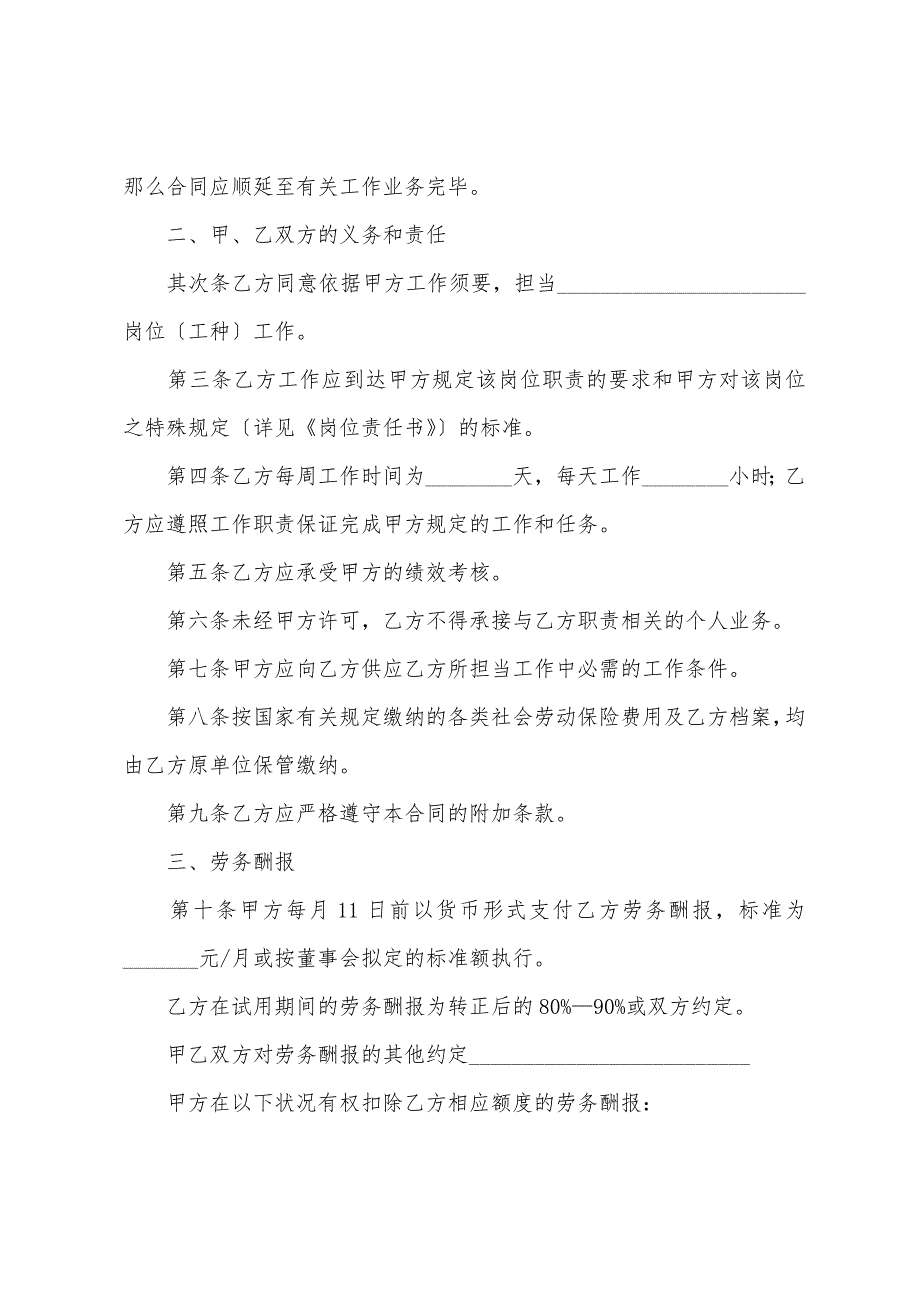 那么合同应顺延至有关工作业务完毕。
二、甲、乙双方的义务和责任
其次条乙方同意依据甲方工作须要，担当_______________________
岗位〔工种〕工作。
第三条乙方工作应到达甲方规定该岗位职责的要求和甲方对该岗位
之特殊规定〔详见《岗位责任书》〕的标准。
第四条乙方每周工作时间为________天，每天工作________小时；乙
方应遵照工作职责保证完成甲方规定的工作和任务。
第五条乙方应承受甲方的绩效考核。
第六条未经甲方许可，乙方不得承接与乙方职责相关的个人业务。
第七条甲方应向乙方供应乙方所担当工作中必需的工作条件。
第八条按国家有关规定缴纳的各类社会劳动保险费用及乙方档案，均
由乙方原单位保管缴纳。
第九条乙方应严格遵守本合同的附加条款。
三、劳务酬报
第十条甲方每月11日前以货币形式支付乙方劳务酬报，标准为
_______元/月或按董事会拟定的标准额执行。
乙方在试用期间的劳务酬报为转正后的80%—90%或双方约定。
甲乙双方对劳务酬报的其他约定__________________________
甲方在以下状况有权扣除乙方相应额度的劳务酬报：